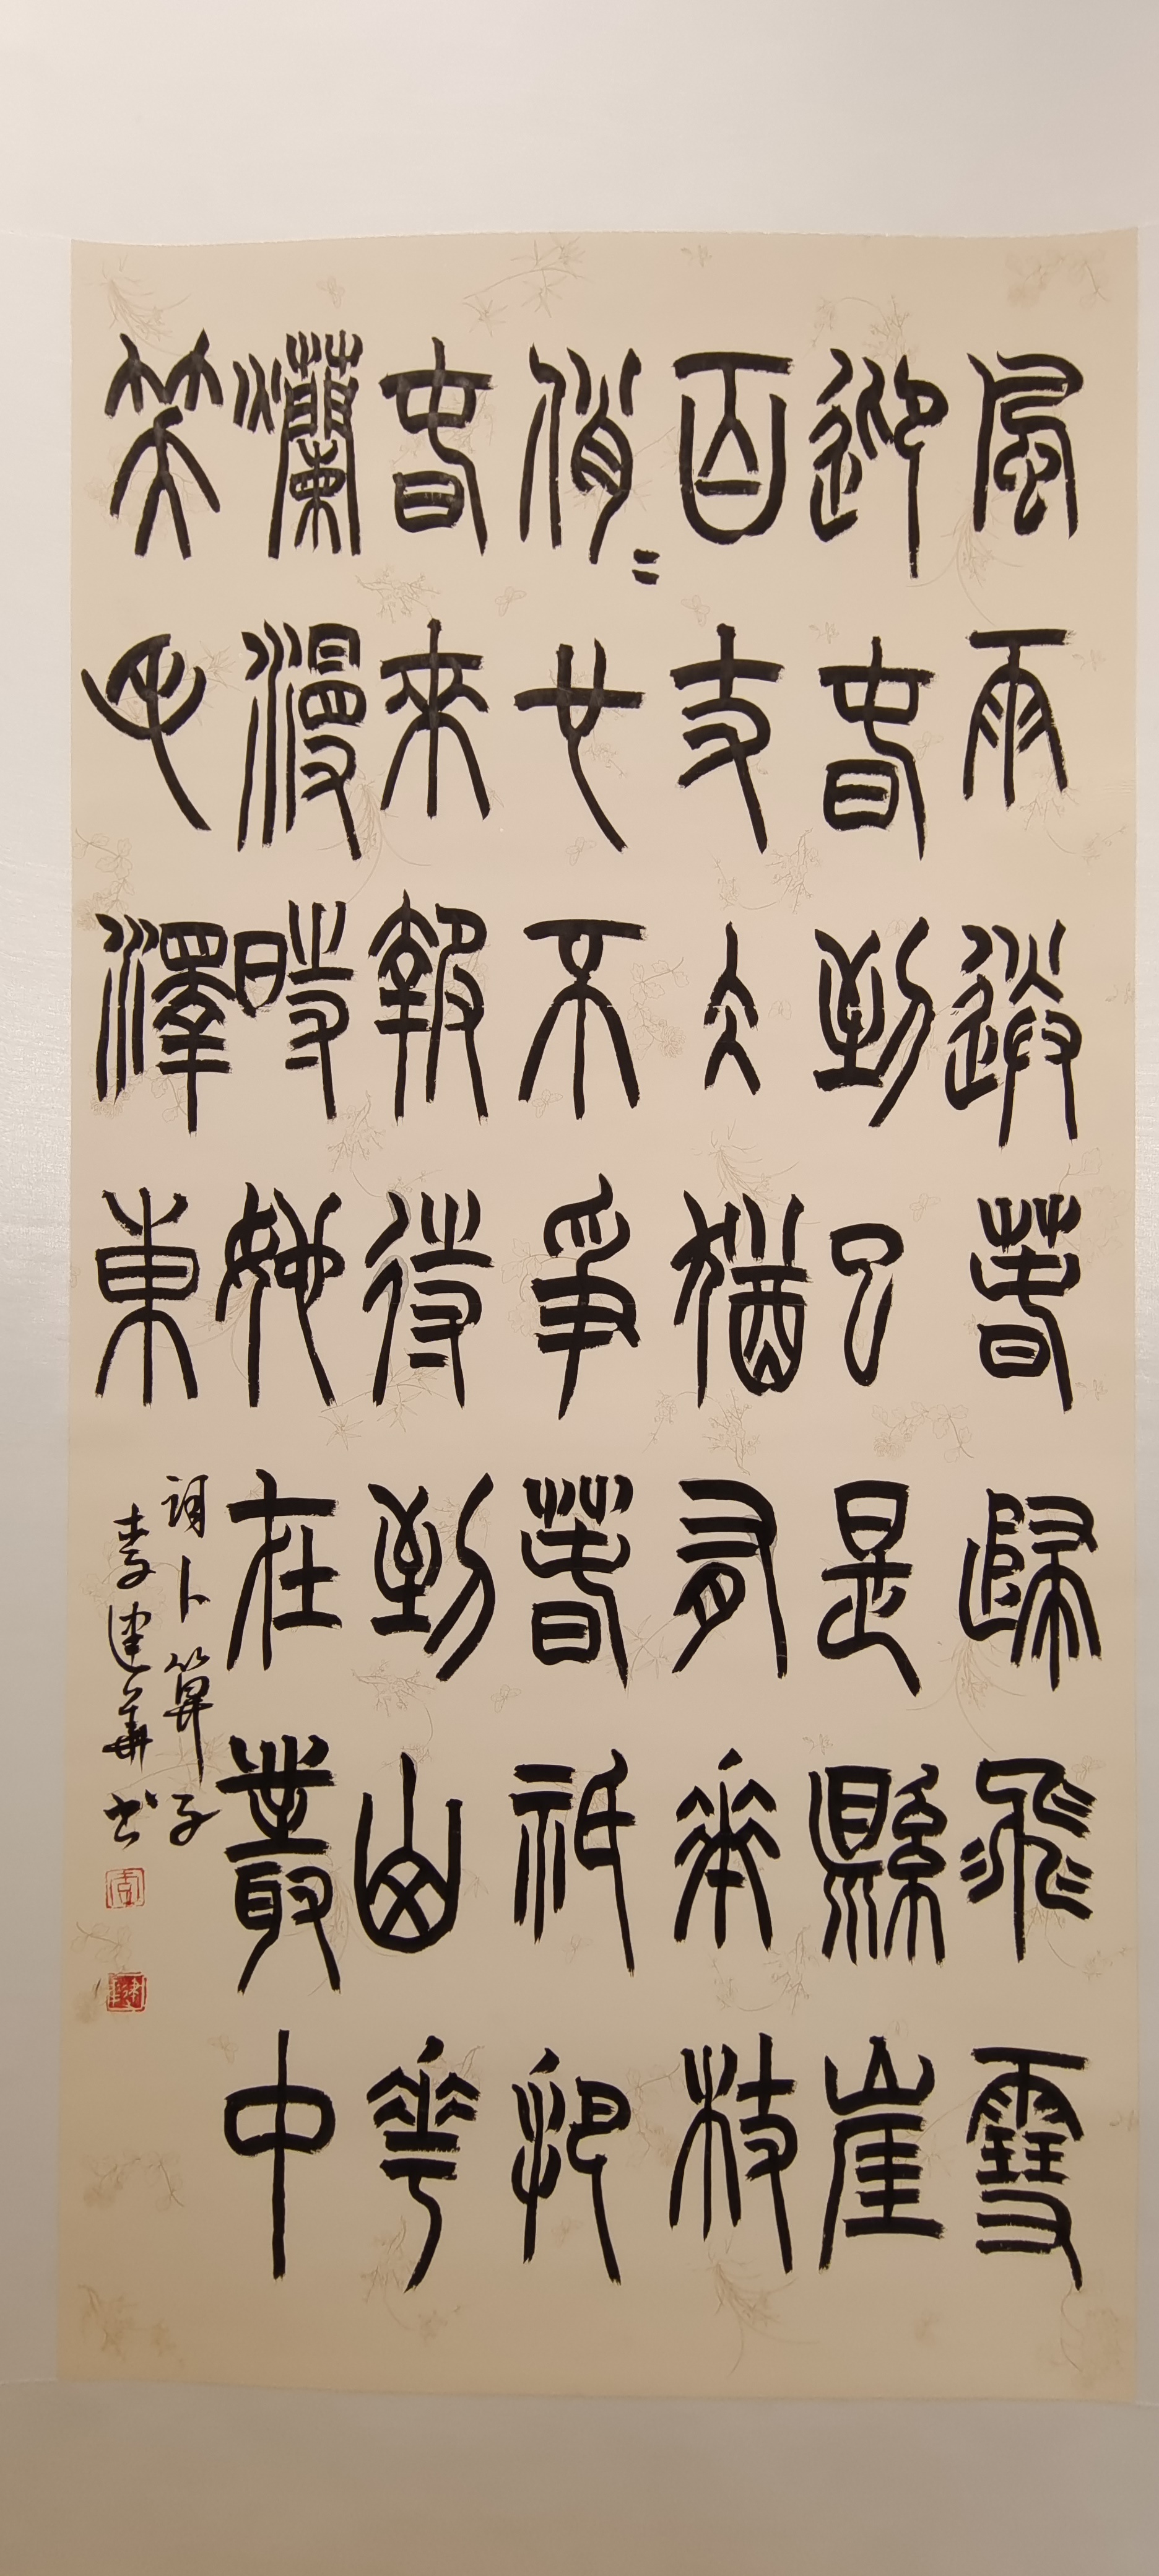 風雨送春歸飛雪
迎春到已是縣崖
百丈冰猶有花枝
俏〻也不爭春祇把
春來報待到山花
爛漫時她在叢中
笑毛澤東
詞卜算子
李建華书